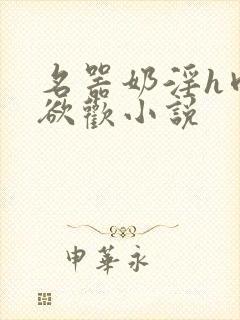 名器奶淫h
欲歡小說
申華永